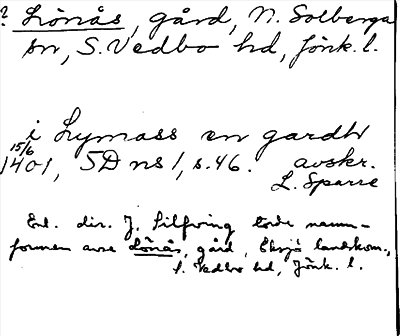 ? Lönås, gård, N. Solberga
sn, S. Vedbo hd, Jönk. l.
i Lymass en gardh
15/6
1401, SD ns 1, s. 46. avskr.
L. Sparre
Enl. dir. J. Silfving torde namn-
formen avse Lönås, gård, Eksjö landskom.,
S. Vedbo hd, Jönk. l.